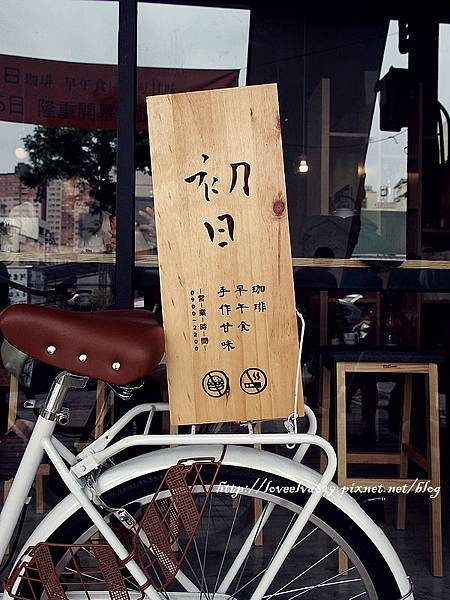 日 珈琲 早午食
5日 隆重開幕
初
日
珈琲
早午食
手作甘味
營業時間
0900-2200
http://loveelva619.pixnet.net/blog